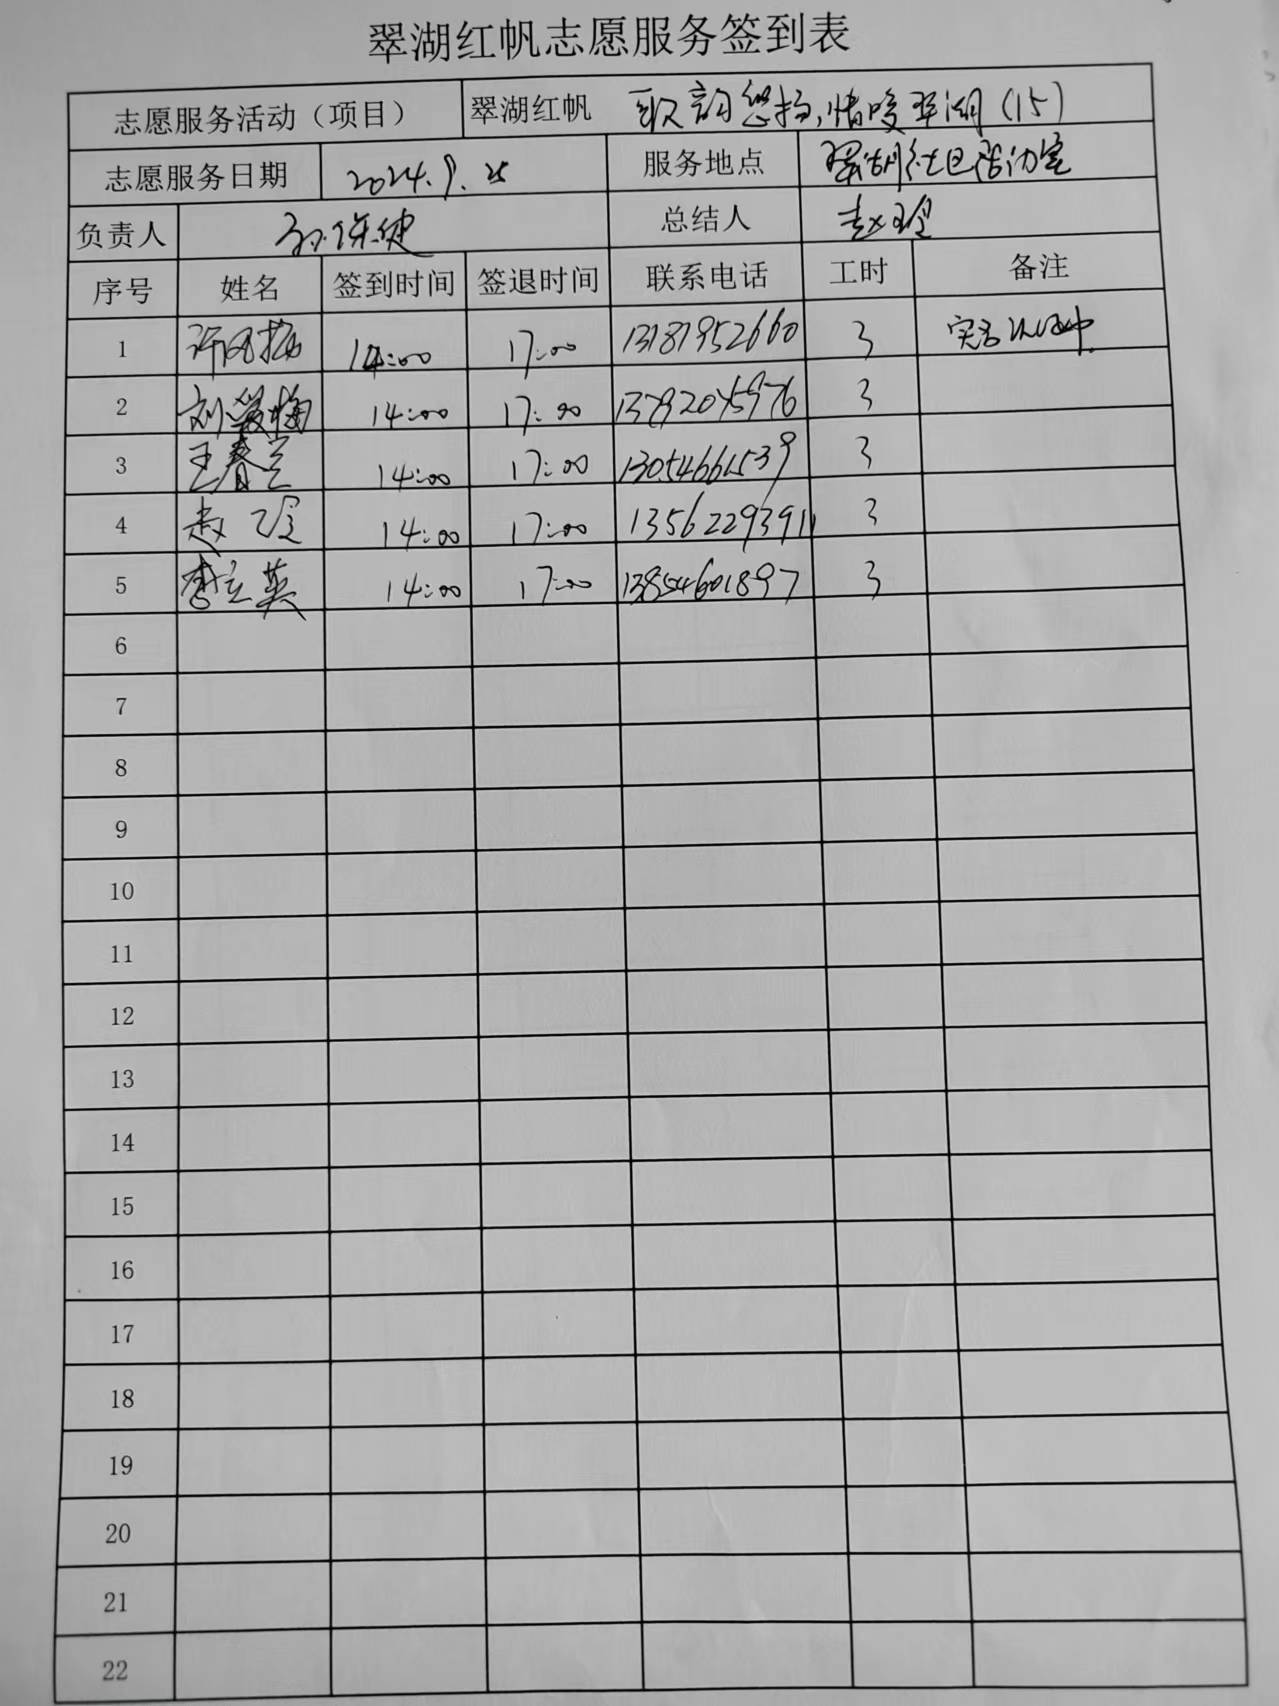 翠湖红帆志愿服务签到表
志愿服务活动（项目） 翠湖红帆 歌韵悠扬,情暖翠湖(15)
志愿服务日期 2024.9.25 服务地点 翠湖社区活动室
负责人 孙保健 总结人 赵玲
序号 姓名 签到时间 签退时间 联系电话 工时 备注
1 许 14:00 17:00 13181952660 3 实名认证中
2 刘 梅 14:00 17:00 3
3 王春兰 14:00 17:00 13054661539 3
4 赵玲 14:00 17:00 13562293911 3
5 李立英 14:00 17:00 13854601897 3
6
7
8
9
10
11
12
13
14
15
16
17
18
19
20
21
22